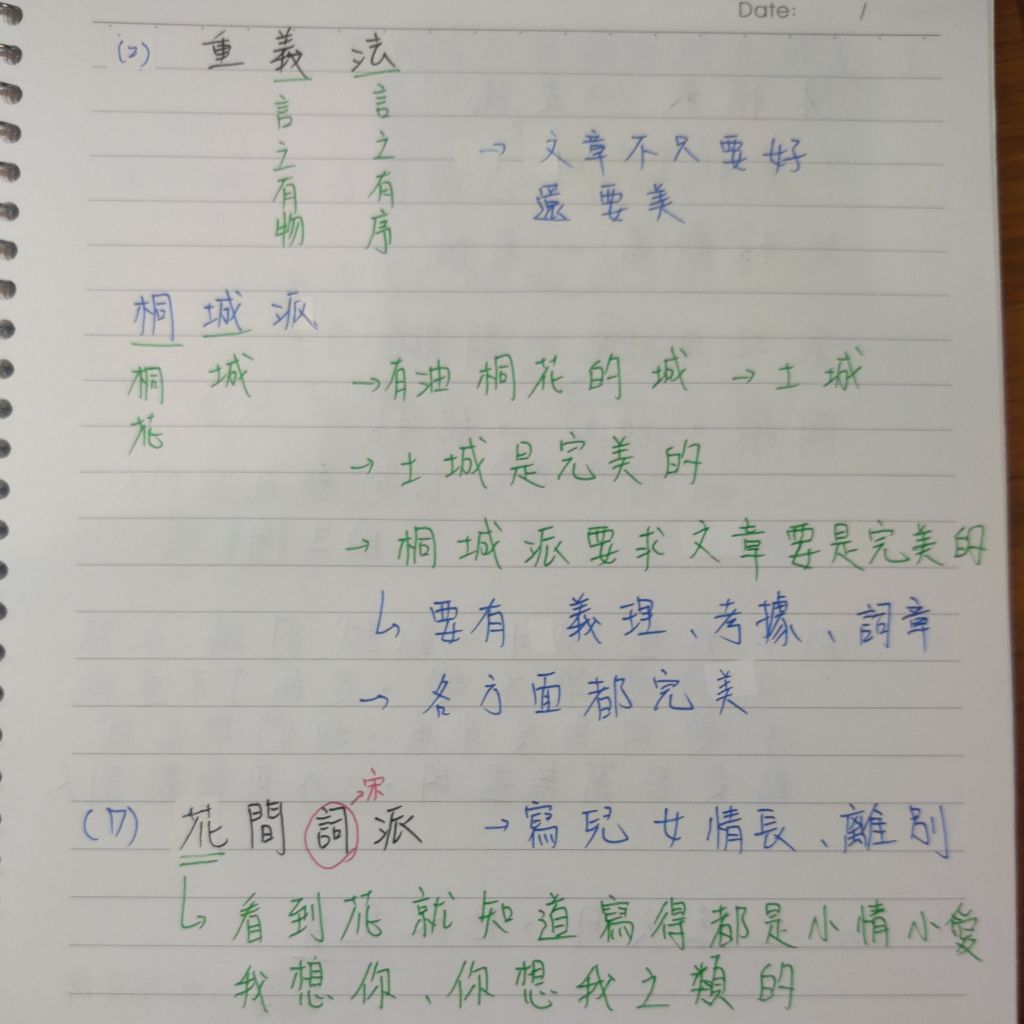 Date: /
(2) 重義法
言之有物
言之有序
→ 文章不只要好
還要美
桐城派
桐花
城
→有油桐花的城 → 土城
→ 土城是完美的
→ 桐城派要求文章要是完美的
↳ 要有 義理、考據、詞章
→ 各方面都完美
(17) 花間詞派 → 寫兒女情長、離別
→宋
↳ 看到花就知道寫得都是小情小愛
我想你、你想我之類的